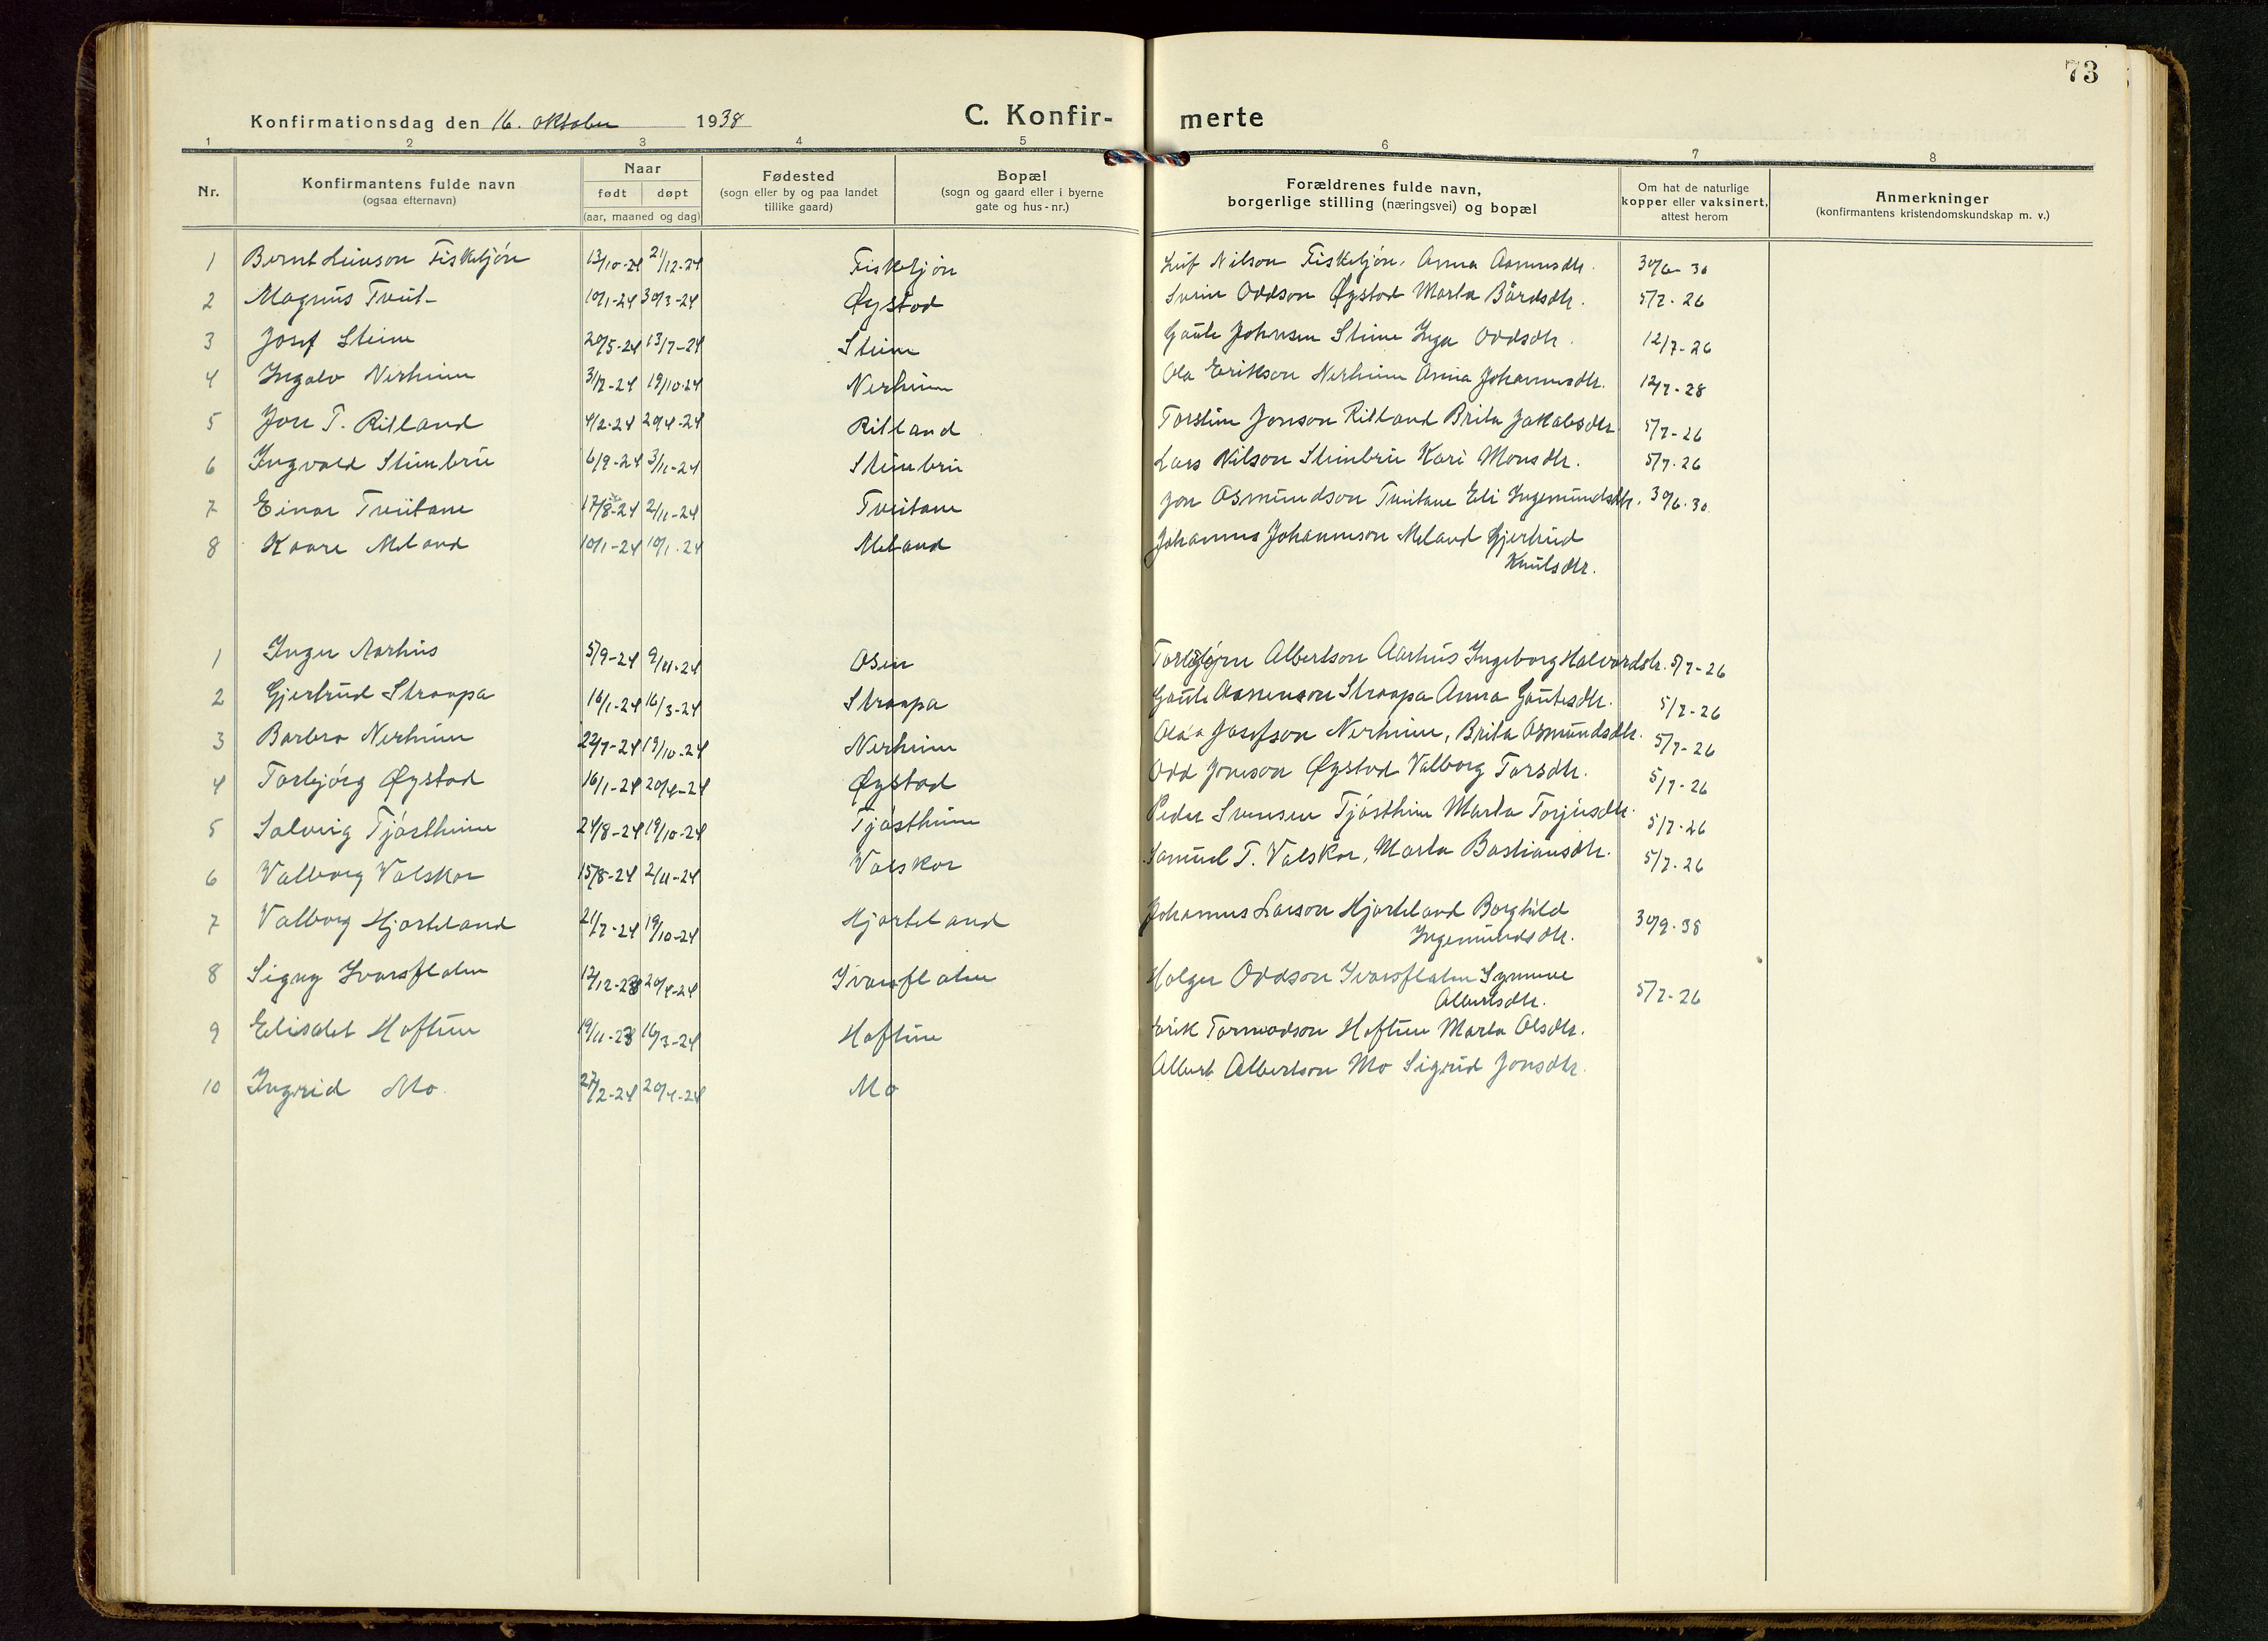 73
Konfirmationsdag den 16. oktober 1938
C. Konfir- merte
1 2 3 4 5 6 7 8
Nr. Konfirmantens fulde navn (ogsaa efternavn) Naar født døpt (aar, maaned og dag) Fødested (sogn eller by og paa landet tillike gaard) Bopæl (sogn og gaard eller i byerne gate og hus-nr.) Forældrenes fulde navn, borgerlige stilling (næringsvei) og bopæl Om hat de naturlige kopper eller vaksinert, attest herom Anmerkninger (konfirmantens kristendomskundskap m. v.)
1 Bernt Leivson Fisketjön 13/10-24 21/12-24 Fisketjön Leif Nilson Fisketjön, Anna Asmusdtr. 30/6-30
2 Magnus Tveit 10/1-24 30/3-24 Øystad Svein Oddson Øystad Marta Bårdsdtr. 5/7-26
3 Josef Steine 20/5-24 13/7-24 Steine Gaute Johnsen Steine Inga Oddsdtr. 12/7-26
4 Ingolv Nerheim 3/7-24 19/10-24 Nerheim Ola Erikson Nerheim Anna Johannesdtr. 12/7-28
5 Jon T. Ritland 4/2-24 20/4-24 Ritland Torstein Jonson Ritland Brita Jakobsdtr. 5/7-26
6 Ingvald Steinbru 6/9-24 3/11-24 Steinbru Lars Nilson Steinbru Kari Monsdtr. 5/7-26
7 Einar Tveitane 17/8-24 2/11-24 Tveitane Jon Osmundson Tveitane Eli Ingemundsdtr. 30/6-30
8 Kaare Meland 10/1-24 10/1-24 Meland Johannes Johanneson Meland Gjertrud
Knutsdtr.
1 Inger Aarhus 5/9-24 9/11-24 Osen Torbjørn Albertson Aarhus Ingeborg Halvardsdtr. 5/7-26
2 Gjertrud Straapa 16/1-24 16/3-24 Straapa Gaute Aanenson Straapa Anna Gautesdtr. 5/7-26
3 Barbro Nerheim 22/7-24 19/10-24 Nerheim Ola Josefson Nerheim, Brita Osmundsdtr. 5/7-26
4 Torbjörg Øystad 16/1-24 20/4-24 Øystad Odd Jonson Øystad Valborg Torsdtr. 5/7-26
5 Solveig Tjöstheim 24/8-24 19/10-24 Tjöstheim Peder Svensen Tjöstheim Marta Torjusdtr. 5/7-26
6 Valborg Valskar 15/8-24 2/11-24 Valskar Samuel T. Valskar, Marta Bastiansdtr. 5/7-26
7 Valborg Hjorteland 21/7-24 19/10-24 Hjorteland Johannes Larson Hjorteland Borghild
Ingemundsdtr. 30/9-38
8 Signy Ivarsflaten 12/12-23 20/4-24 Ivarsflaten Holger Oddson Ivarsflaten Synneve
Albertsdtr. 5/7-26
9 Elisabet Hoftun 19/11-23 16/3-24 Hoftun Eirik Tormodson Hoftun Marta Olsdtr.
10 Ingrid Mo. 27/2-24 20/4-24 Mo Albert Albertson Mo Sigrid Jonsdtr.